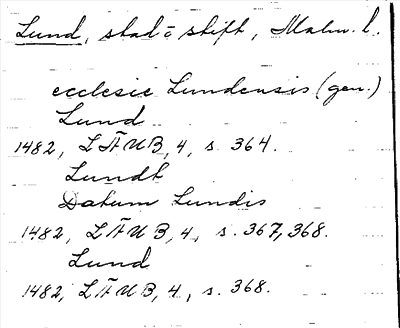 Lund, stad o stift, Malm. l.
ecclesie Lundensis (gen.)
Lund
1482, LÄUB, 4, s. 364.
Lundh
Datum Lundis
1482, LÄUB, 4, s. 367, 368.
Lund
1482, LÄUB, 4, s. 368.